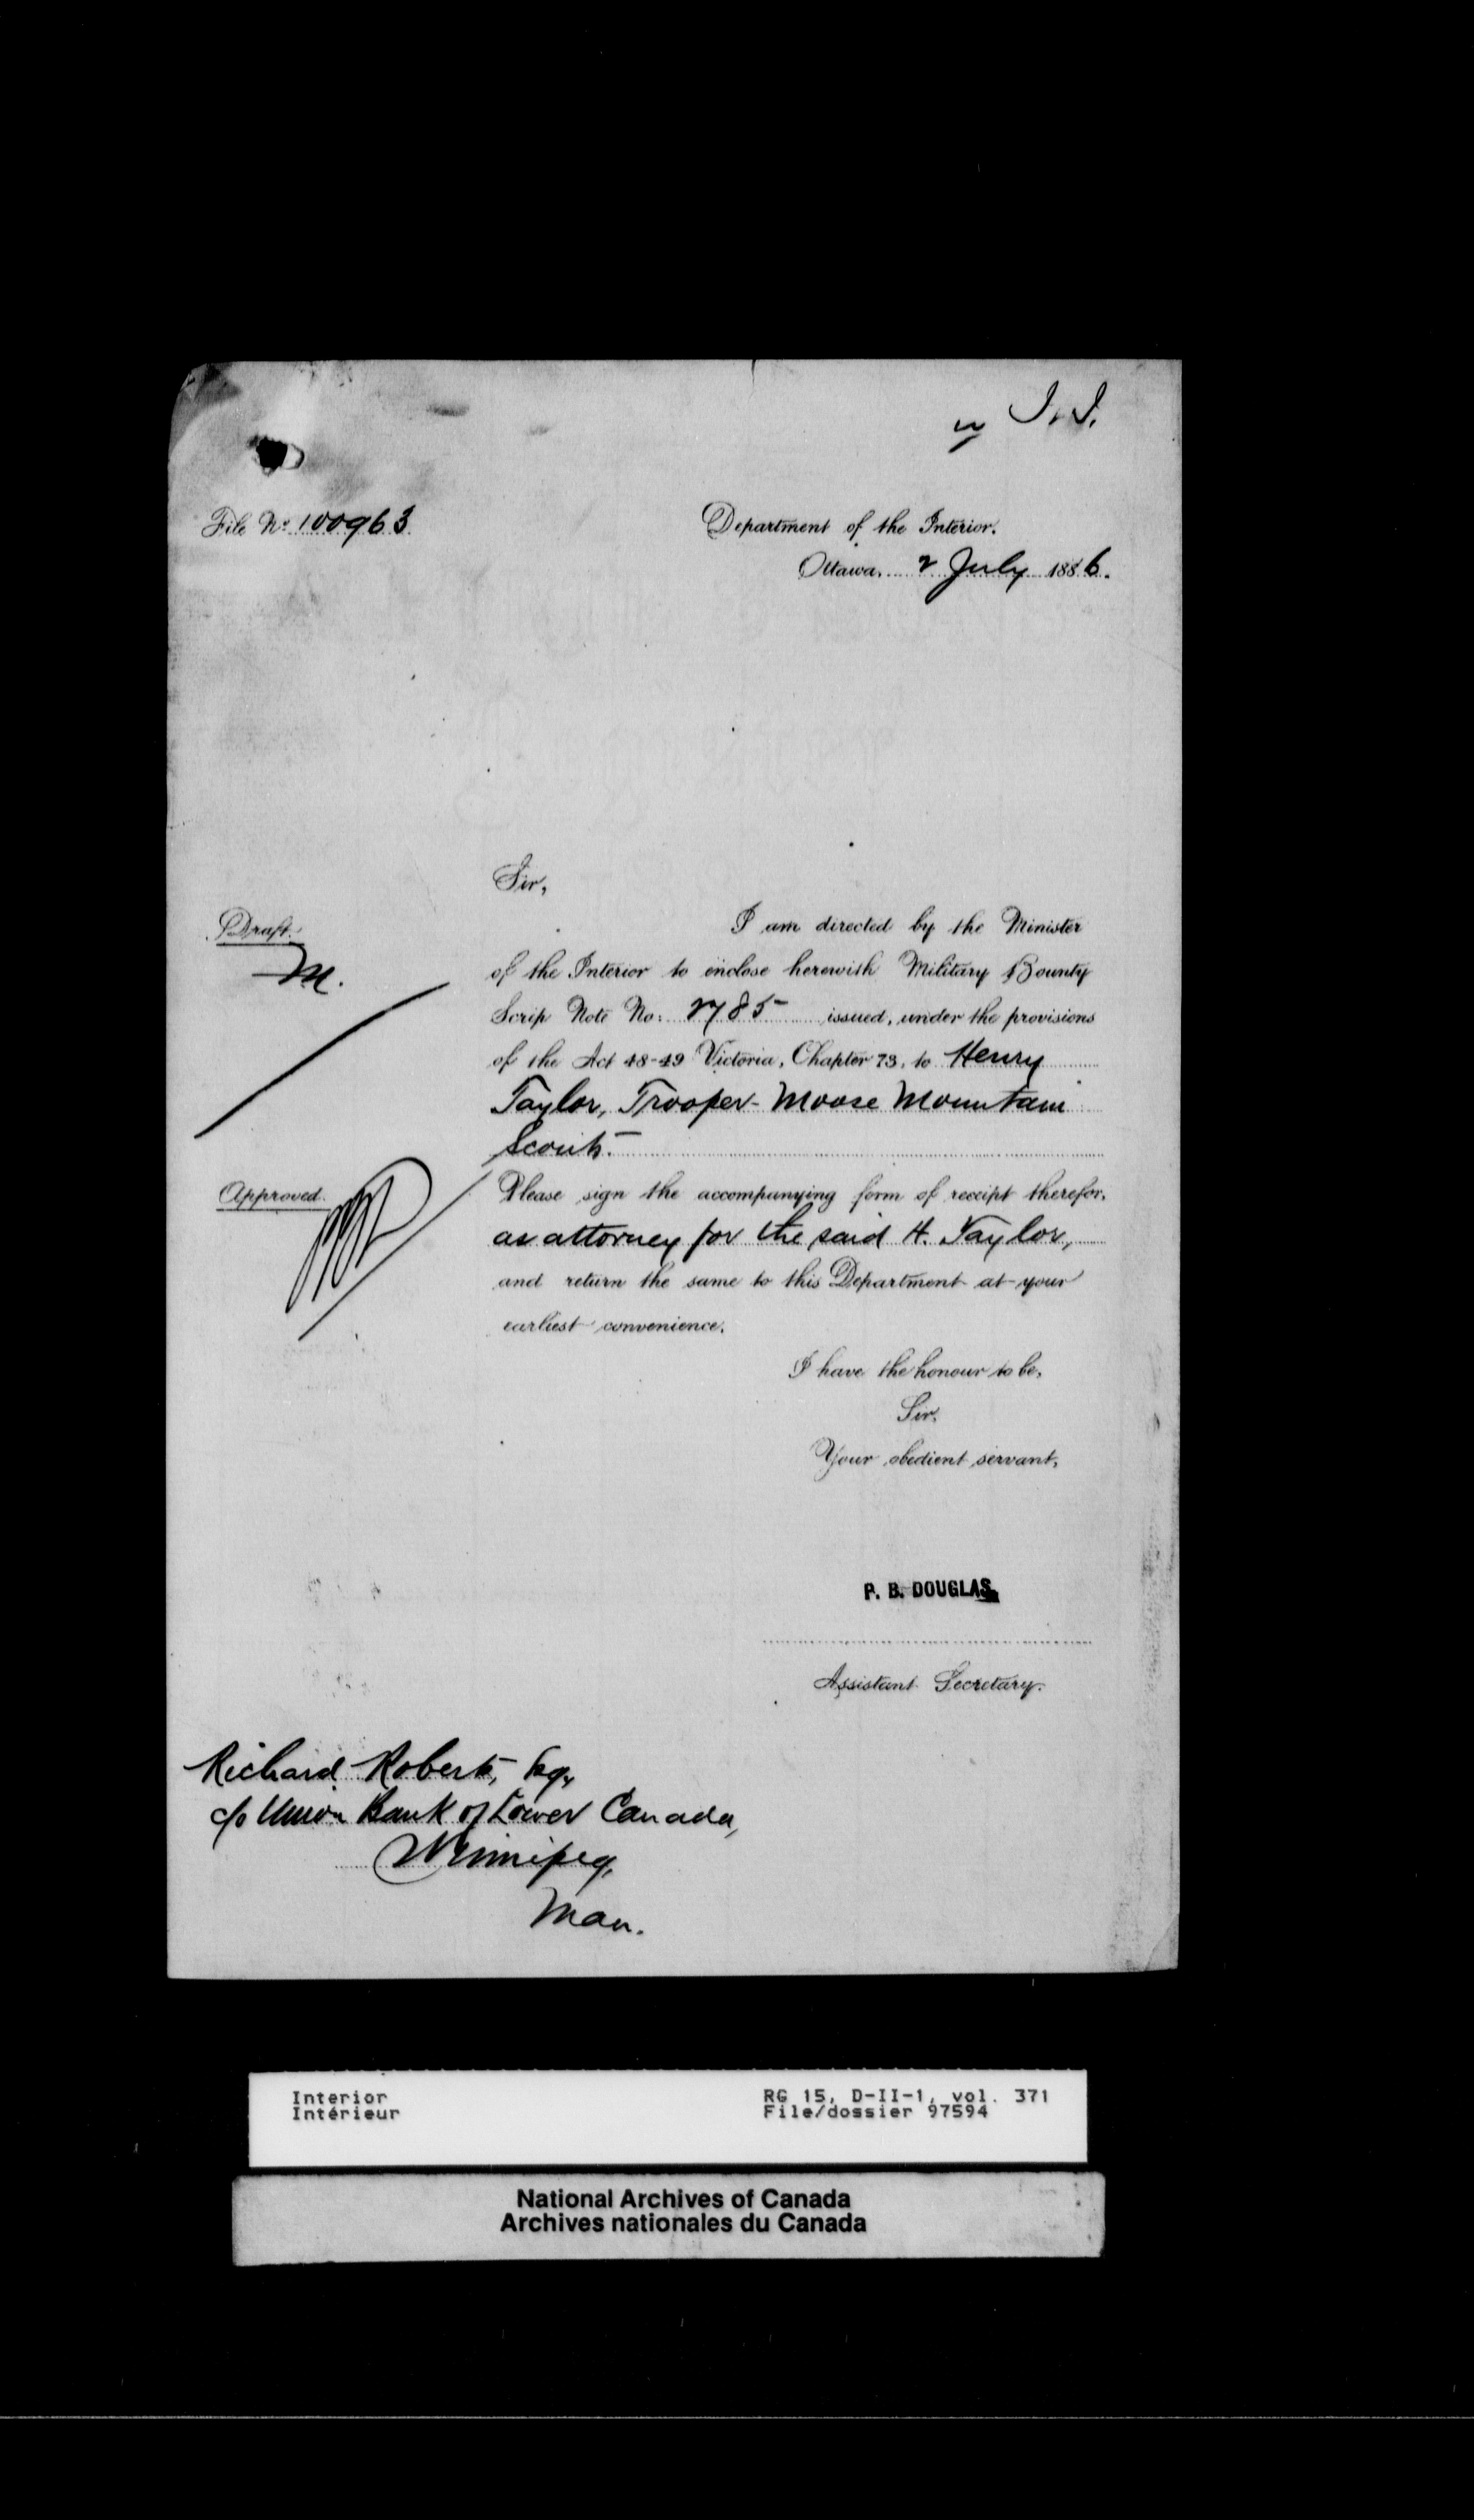 File No. 100963
Department of the Interior.
Ottawa, 2 July 1886.
Sir,
Draft.
M.
I am directed by the Minister
of the Interior to enclose herewith Military Bounty
Scrip Note No: 2785 issued, under the provisions
of the Act 48-49 Victoria, Chapter 73, to Henry
Taylor, Trooper - Moose Mountain
Scouts.
Approved.
Please sign the accompanying form of receipt therefor,
as attorney for the said H. Taylor,
and return the same to this Department at your
earliest convenience.
I have the honour to be,
Sir,
Your obedient servant,
P. B. DOUGLAS,
Assistant Secretary.
Richard Roberts, Esq,
c/o Union Bank of Lower Canada,
Winnipeg,
Man.
Interior
Intérieur
RG 15, D-II-1, vol. 371
File/dossier 97594
National Archives of Canada
Archives nationales du Canada